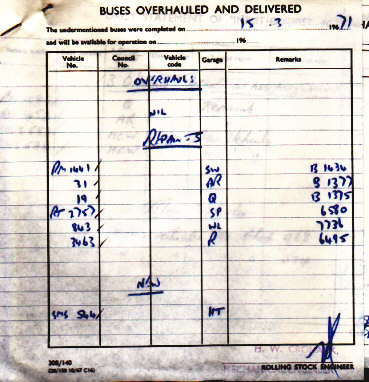 BUSES OVERHAULED AND DELIVERED
The undermentioned buses were completed on 15.3 196 71
and will be available for operation on 196
Vehicle No. Council No. Vehicle code Garage Remarks
OVERHAULS
NIL
REPAINTS
RM 1441 SW B 1434
31 AR B 1377
19 Q B 1375
RT 2757 SP 6580
843 WL 7736
3463 R 6495
NEW
SMS 544 HT
308/140
ROLLING STOCK ENGINEER